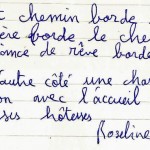 t chemin borde
ère borde le che
ance de rêve borde
autre côté une cha
on avec l'accueil
ses hôtesses
Roseline